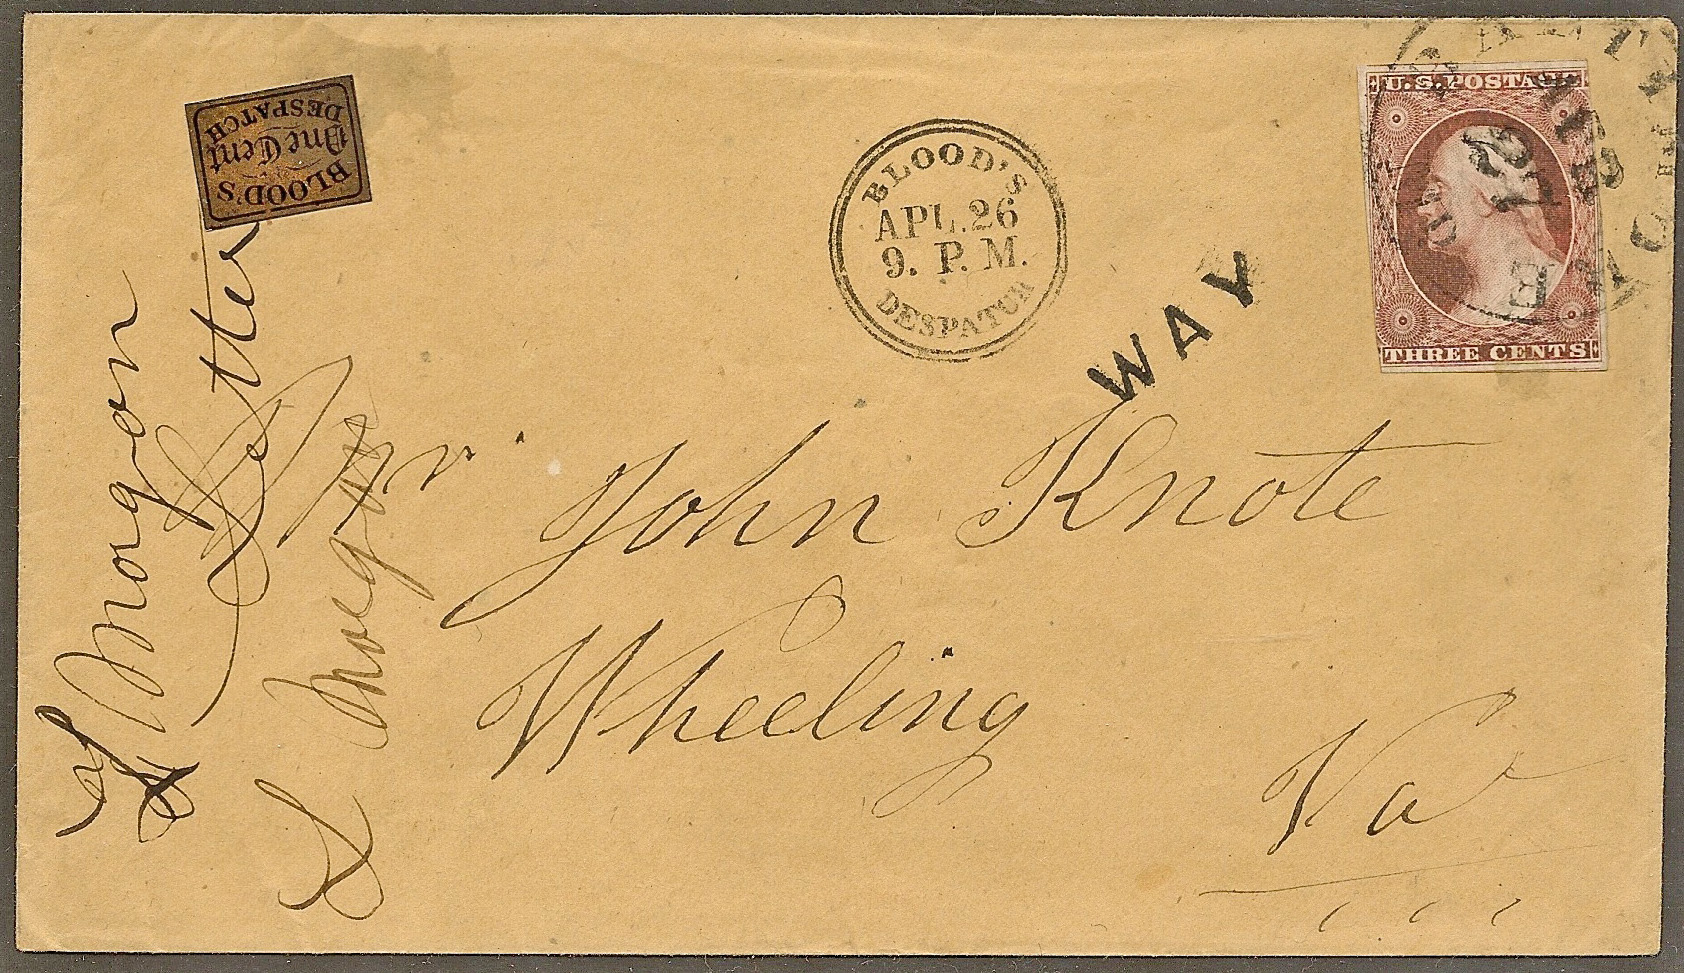 BLOOD'S
One Cent
DESPATCH
BLOOD'S
APL. 26
9. P. M.
DESPATCH
WAY
U.S. POSTAGE
THREE CENTS
27
Mr John Knote
Wheeling
Va
Morgan
Letter
Morgan